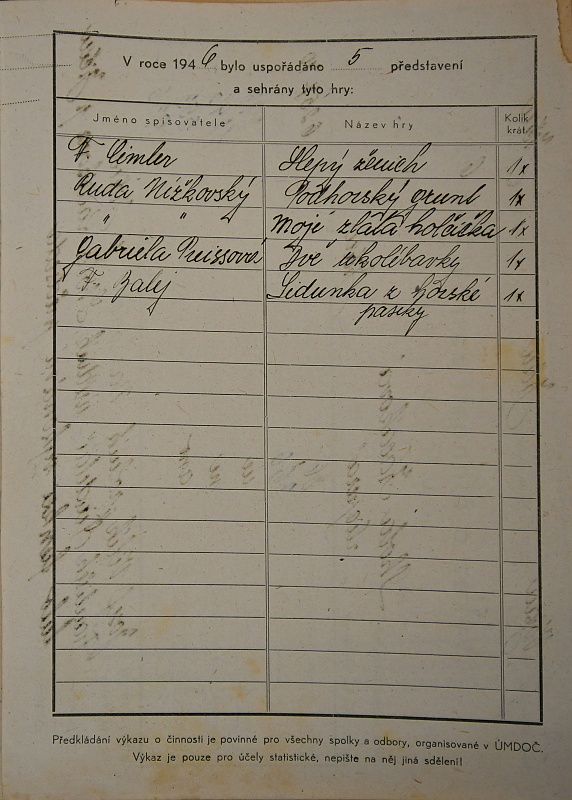 V roce 1946 bylo uspořádáno 5 představení
a sehrány tyto hry:
Jméno spisovatele Název hry Kolik krát:
F. Cimler Slepý ženich 1x
Ruda Nížkovský Podhorský grunt 1x
" " Moje zlatá holčička 1x
Gabriela Preissová Dvě ukolibavky 1x
F. Zalej Lidunka z horské 1x
paseky
Předkládání výkazu o činnosti je povinné pro všechny spolky a odbory, organisované v ÚMDOČ.
Výkaz je pouze pro účely statistické, nepište na něj jiná sdělení!